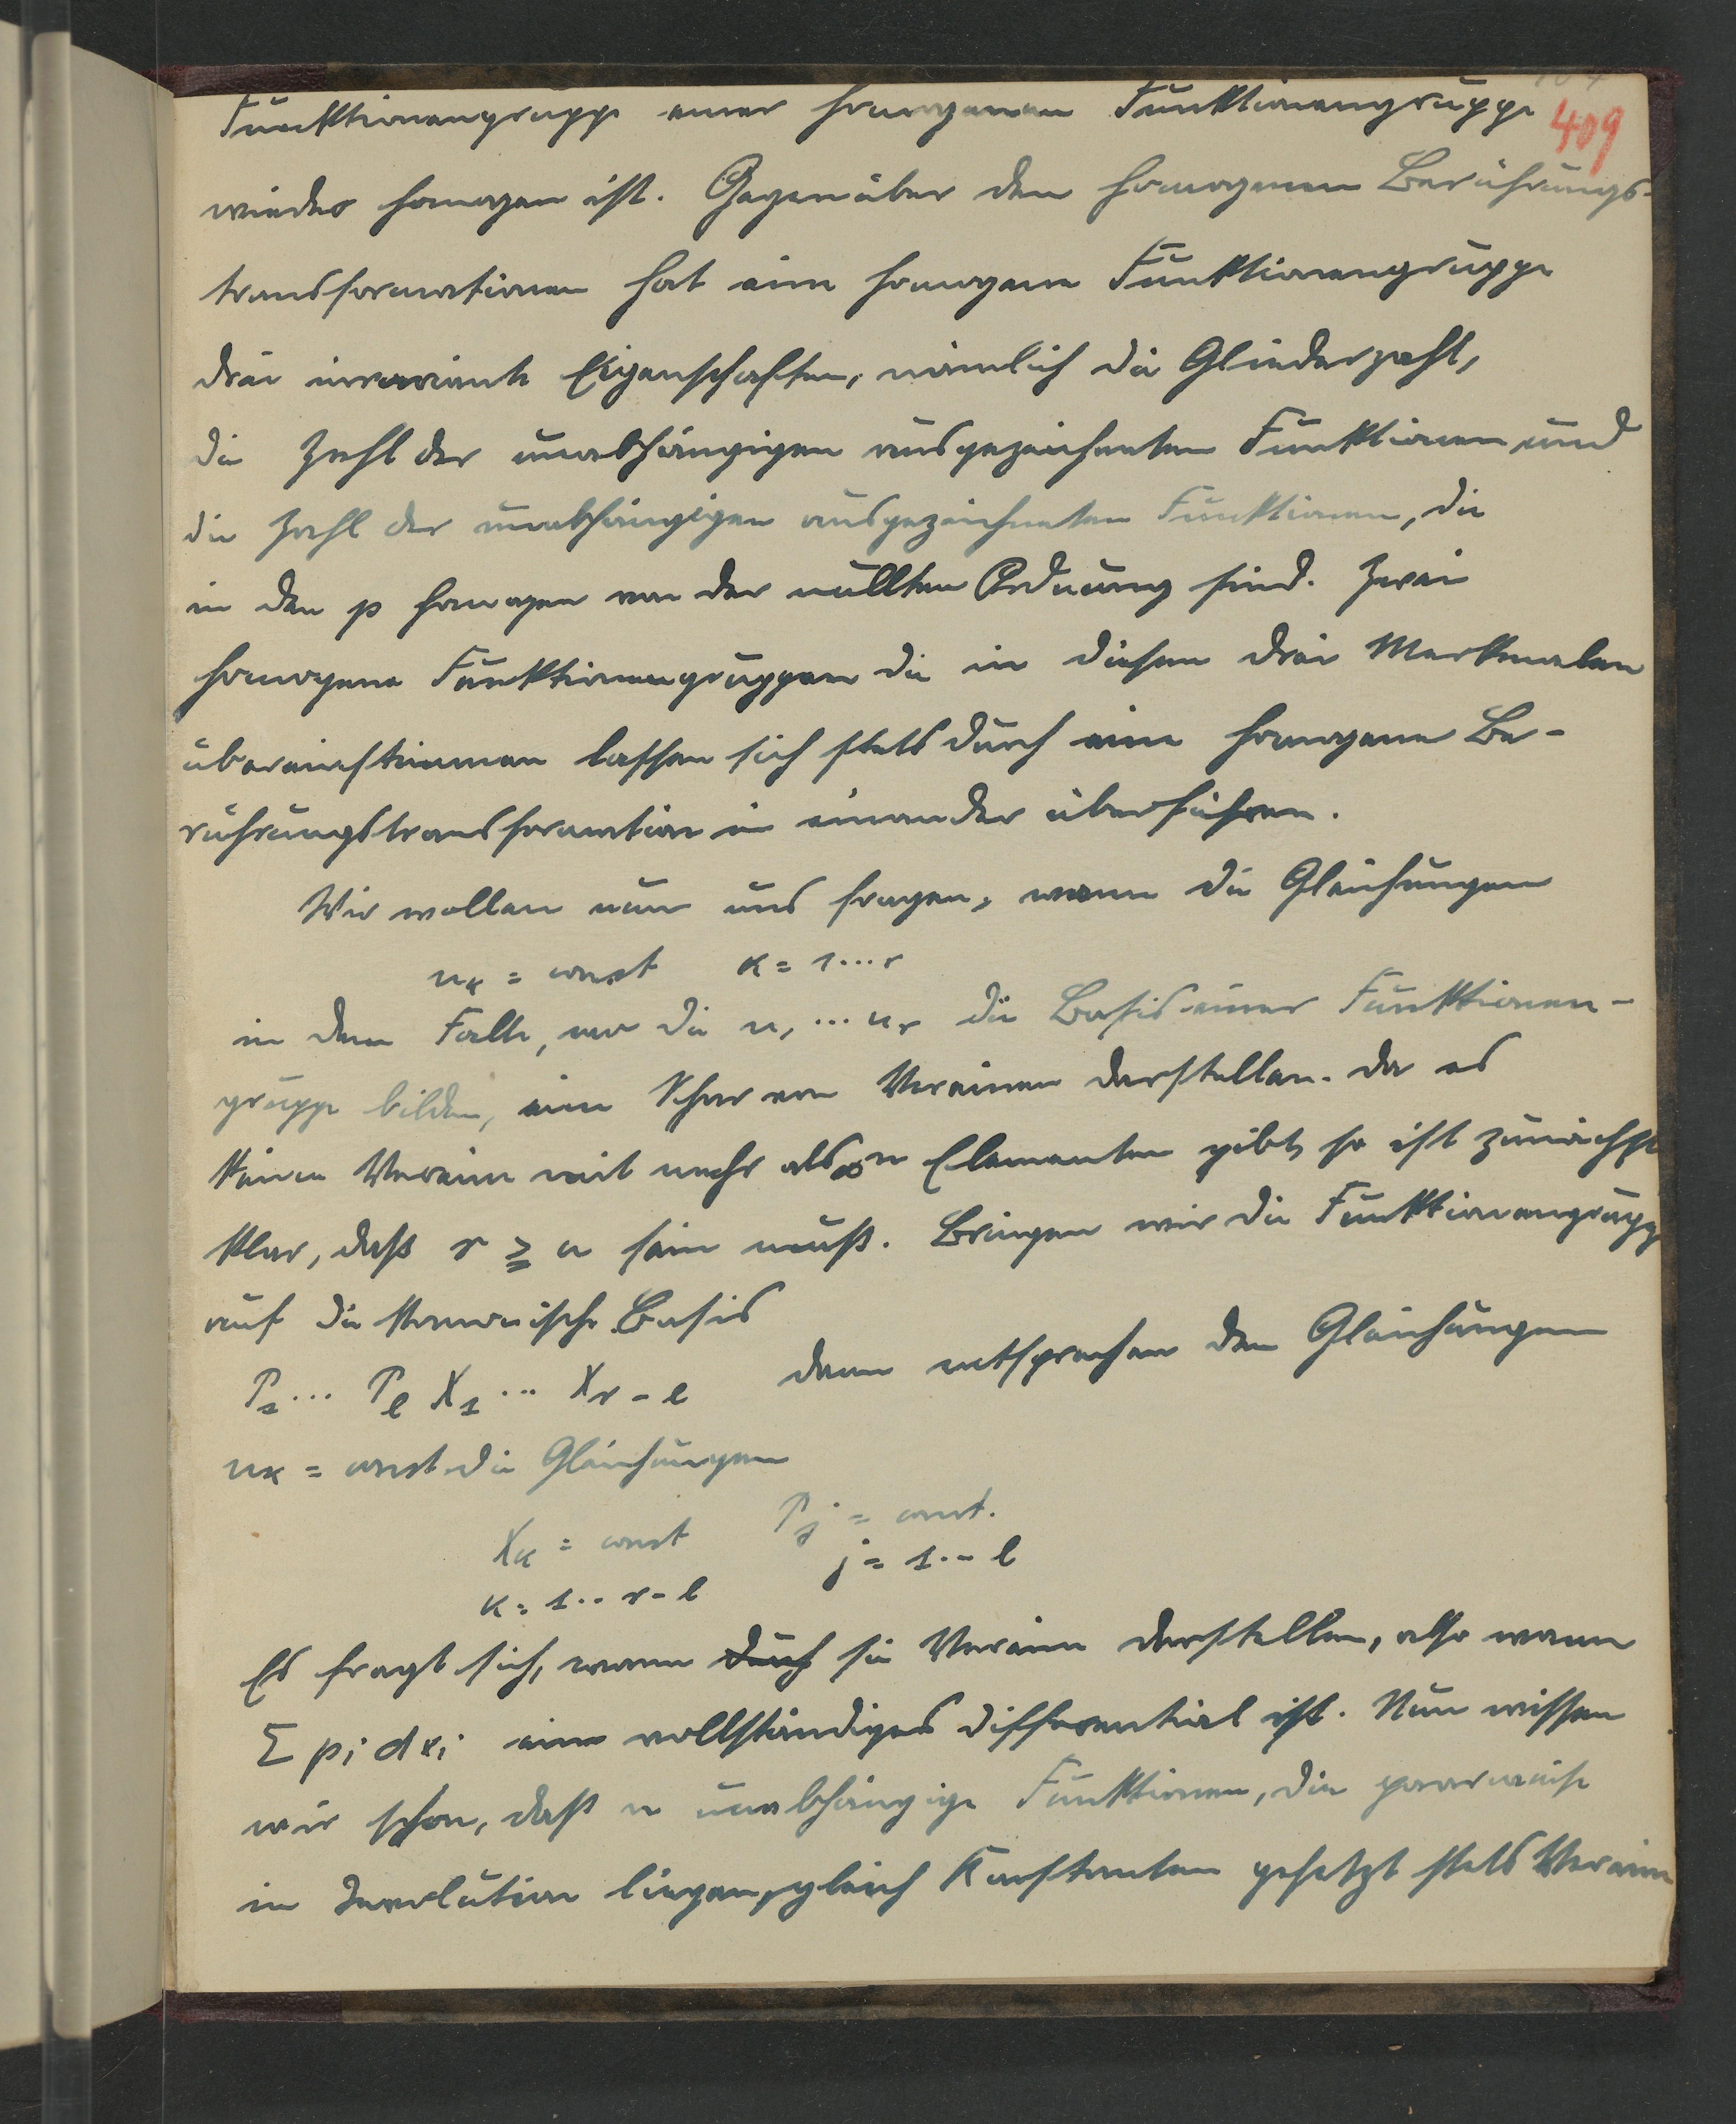 Funktionengruppe einer homogenen Funktionengruppe
409
wieder homogen ist. Gegenüber den homogenen Berührungs-
transformationen hat eine homogene Funktionengruppe
drei invariante Eigenschaften, nämlich die Gliederzahl,
die Zahl der unabhängigen ausgezeichneten Funktionen und
die Zahl der unabhängigen ausgezeichneten Funktionen, die
in den p homogen von der nullten Ordnung sind. Zwei
homogene Funktionengruppen die in diesen drei Merkmalen
übereinstimmen lassen sich stets durch eine homogene Be-
rührungstransformation in einander überführen.
Wir wollen nun uns fragen, wann die Gleichungen
u_κ = const κ = 1...r
in dem Falle, wo die u_1 ... u_r die Basis einer Funktionen-
gruppe bilden, eine Schar von Vereinen darstellen. Da es
keinen Verein mit mehr als ∞^n Elementen gibt, so ist zunächst
klar, daß r ≧ n sein muß. Bringen wir die Funktionengruppe
auf die kanonische Basis
P_1 ... P_l X_1 ... X_{r-l} dann entsprechen den Gleichungen
u_κ = const die Gleichungen
X_κ = const P_j = const.
κ = 1.. r-l j = 1... l
Es fragt sich, wann durch sie Vereine darstellen, also wann
Σ p_i dx_i ein vollständiges Differential ist. Nun wissen
wir schon, daß n unabhängige Funktionen, die paarweise
in Involution liegen, gleich Konstanten gesetzt stets Vereine